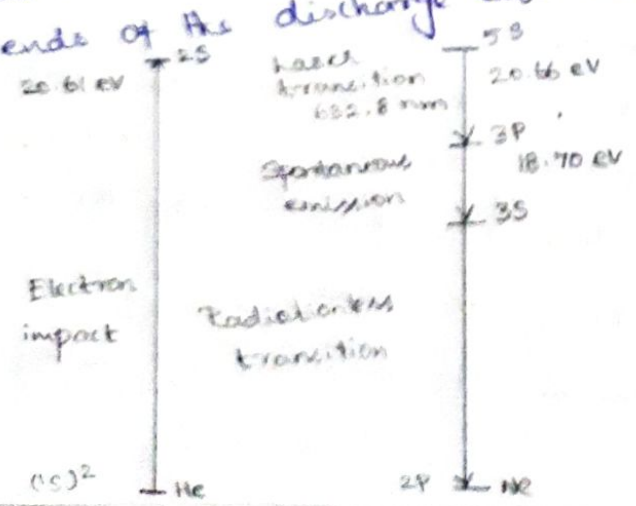 ends of the discharge
2S
20.61 eV
Laser
transition
632.8 nm
5S
20.66 eV
3P
18.70 eV
Spontaneous
emission
3S
Electron
impact
Radiationless
transition
(1S)2
He
2P
Ne